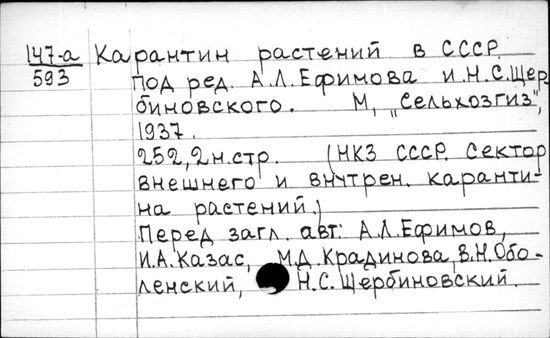 147-а Карантин растений в СССР
593 Под ред. А.Л.Ефимова и Н.С.Щер-
биновского. М, „Сельхозгиз",
1937.
252,2н.стр. (НКЗ СССР. Сектор
внешнего и внутрен. каранти-
на растений.)
Перед загл. авт: А.Л.Ефимов,
И.А.Казас, М.Д.Крадинова, В.Н.Обо-
ленский, Н.С.Щербиновский.